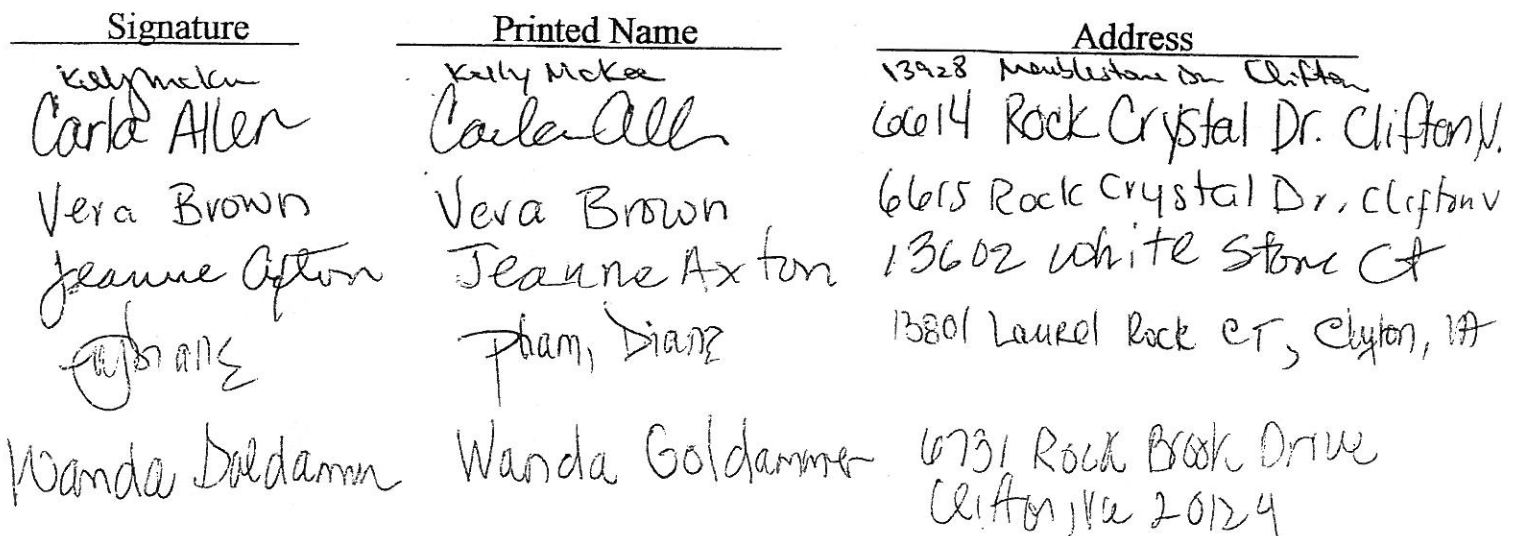 Signature Printed Name Address
Kelly McKee Kelly McKee 13928 Marblestone Dr Clifton
Carla Allen Carla Allen 6614 Rock Crystal Dr. Clifton V.
Vera Brown Vera Brown 6615 Rock Crystal Dr, Clifton V
Jeanne Axton Jeanne Axton 13602 White Stone Ct
Pham, Diane 13801 Laurel Rock CT, Clifton, VA
Wanda Goldammer Wanda Goldammer 6731 Rock Brook Drive
Clifton, Va 20124